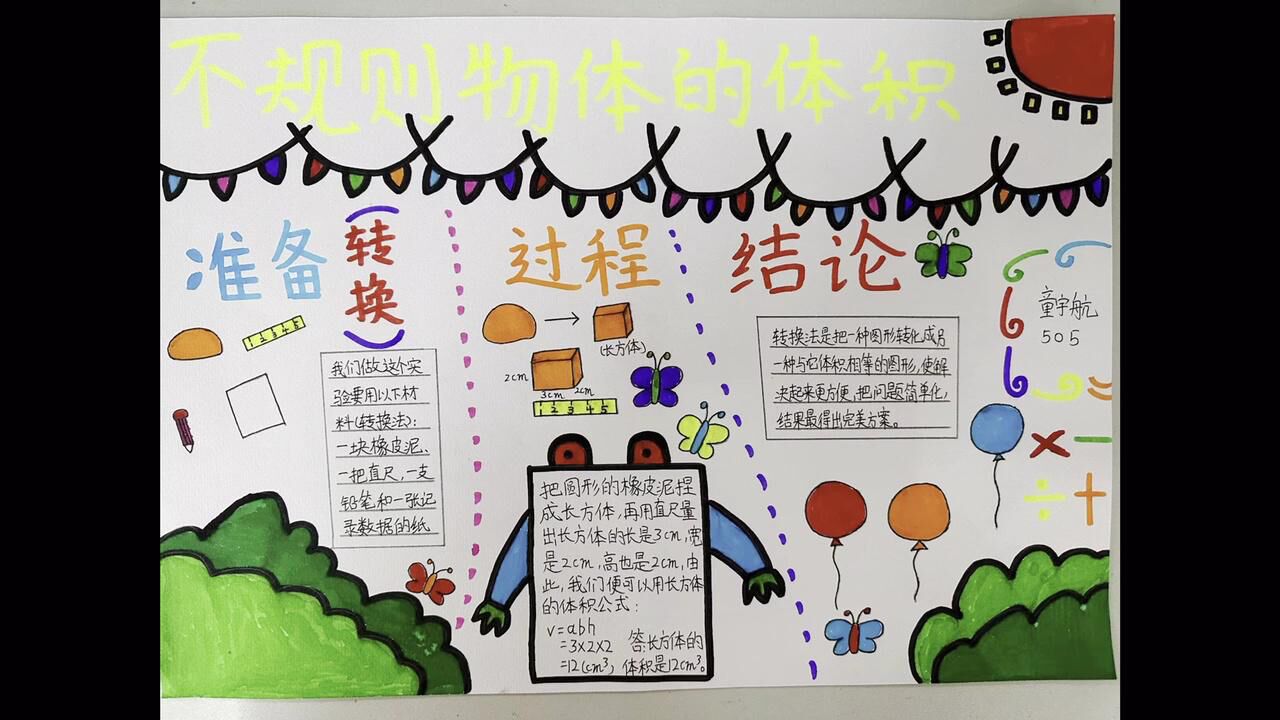 不规则物体的体积
准备
(转换)
1 2 3 4 5
我们做这个实
验要用以下材
料(转换法):
一块橡皮泥、
一把直尺,一支
铅笔和一张记
录数据的纸
过程
(长方体)
2cm
3cm
2cm
1 2 3 4 5
把圆形的橡皮泥捏
成长方体,再用直尺量
出长方体的长是3cm,宽
是2cm,高也是2cm,由
此,我们便可以用长方体
的体积公式:
v=abh
=3×2×2 答:长方体的
=12(cm³) 体积是12cm³。
结论
转换法是把一种图形转化成另
一种与它体积相等的图形,使解
决起来更方便,把问题简单化,
结果最得出完美方案。
童宇航
505
× −
÷ +